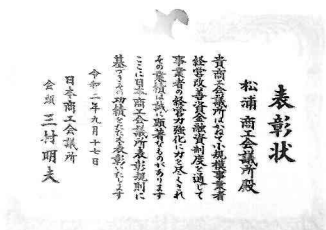 表彰状
松浦商工会議所殿
貴商工会議所はかねて小規模事業者
経営改善資金融資制度を通じて
事業者の経営力強化に力を尽くされ
その業績は誠に顕著なものがあります
ここに日本商工会議所表彰規則に
基づきその功績をたたえ表彰いたします
令和二年九月十七日
日本商工会議所
会頭 三村明夫